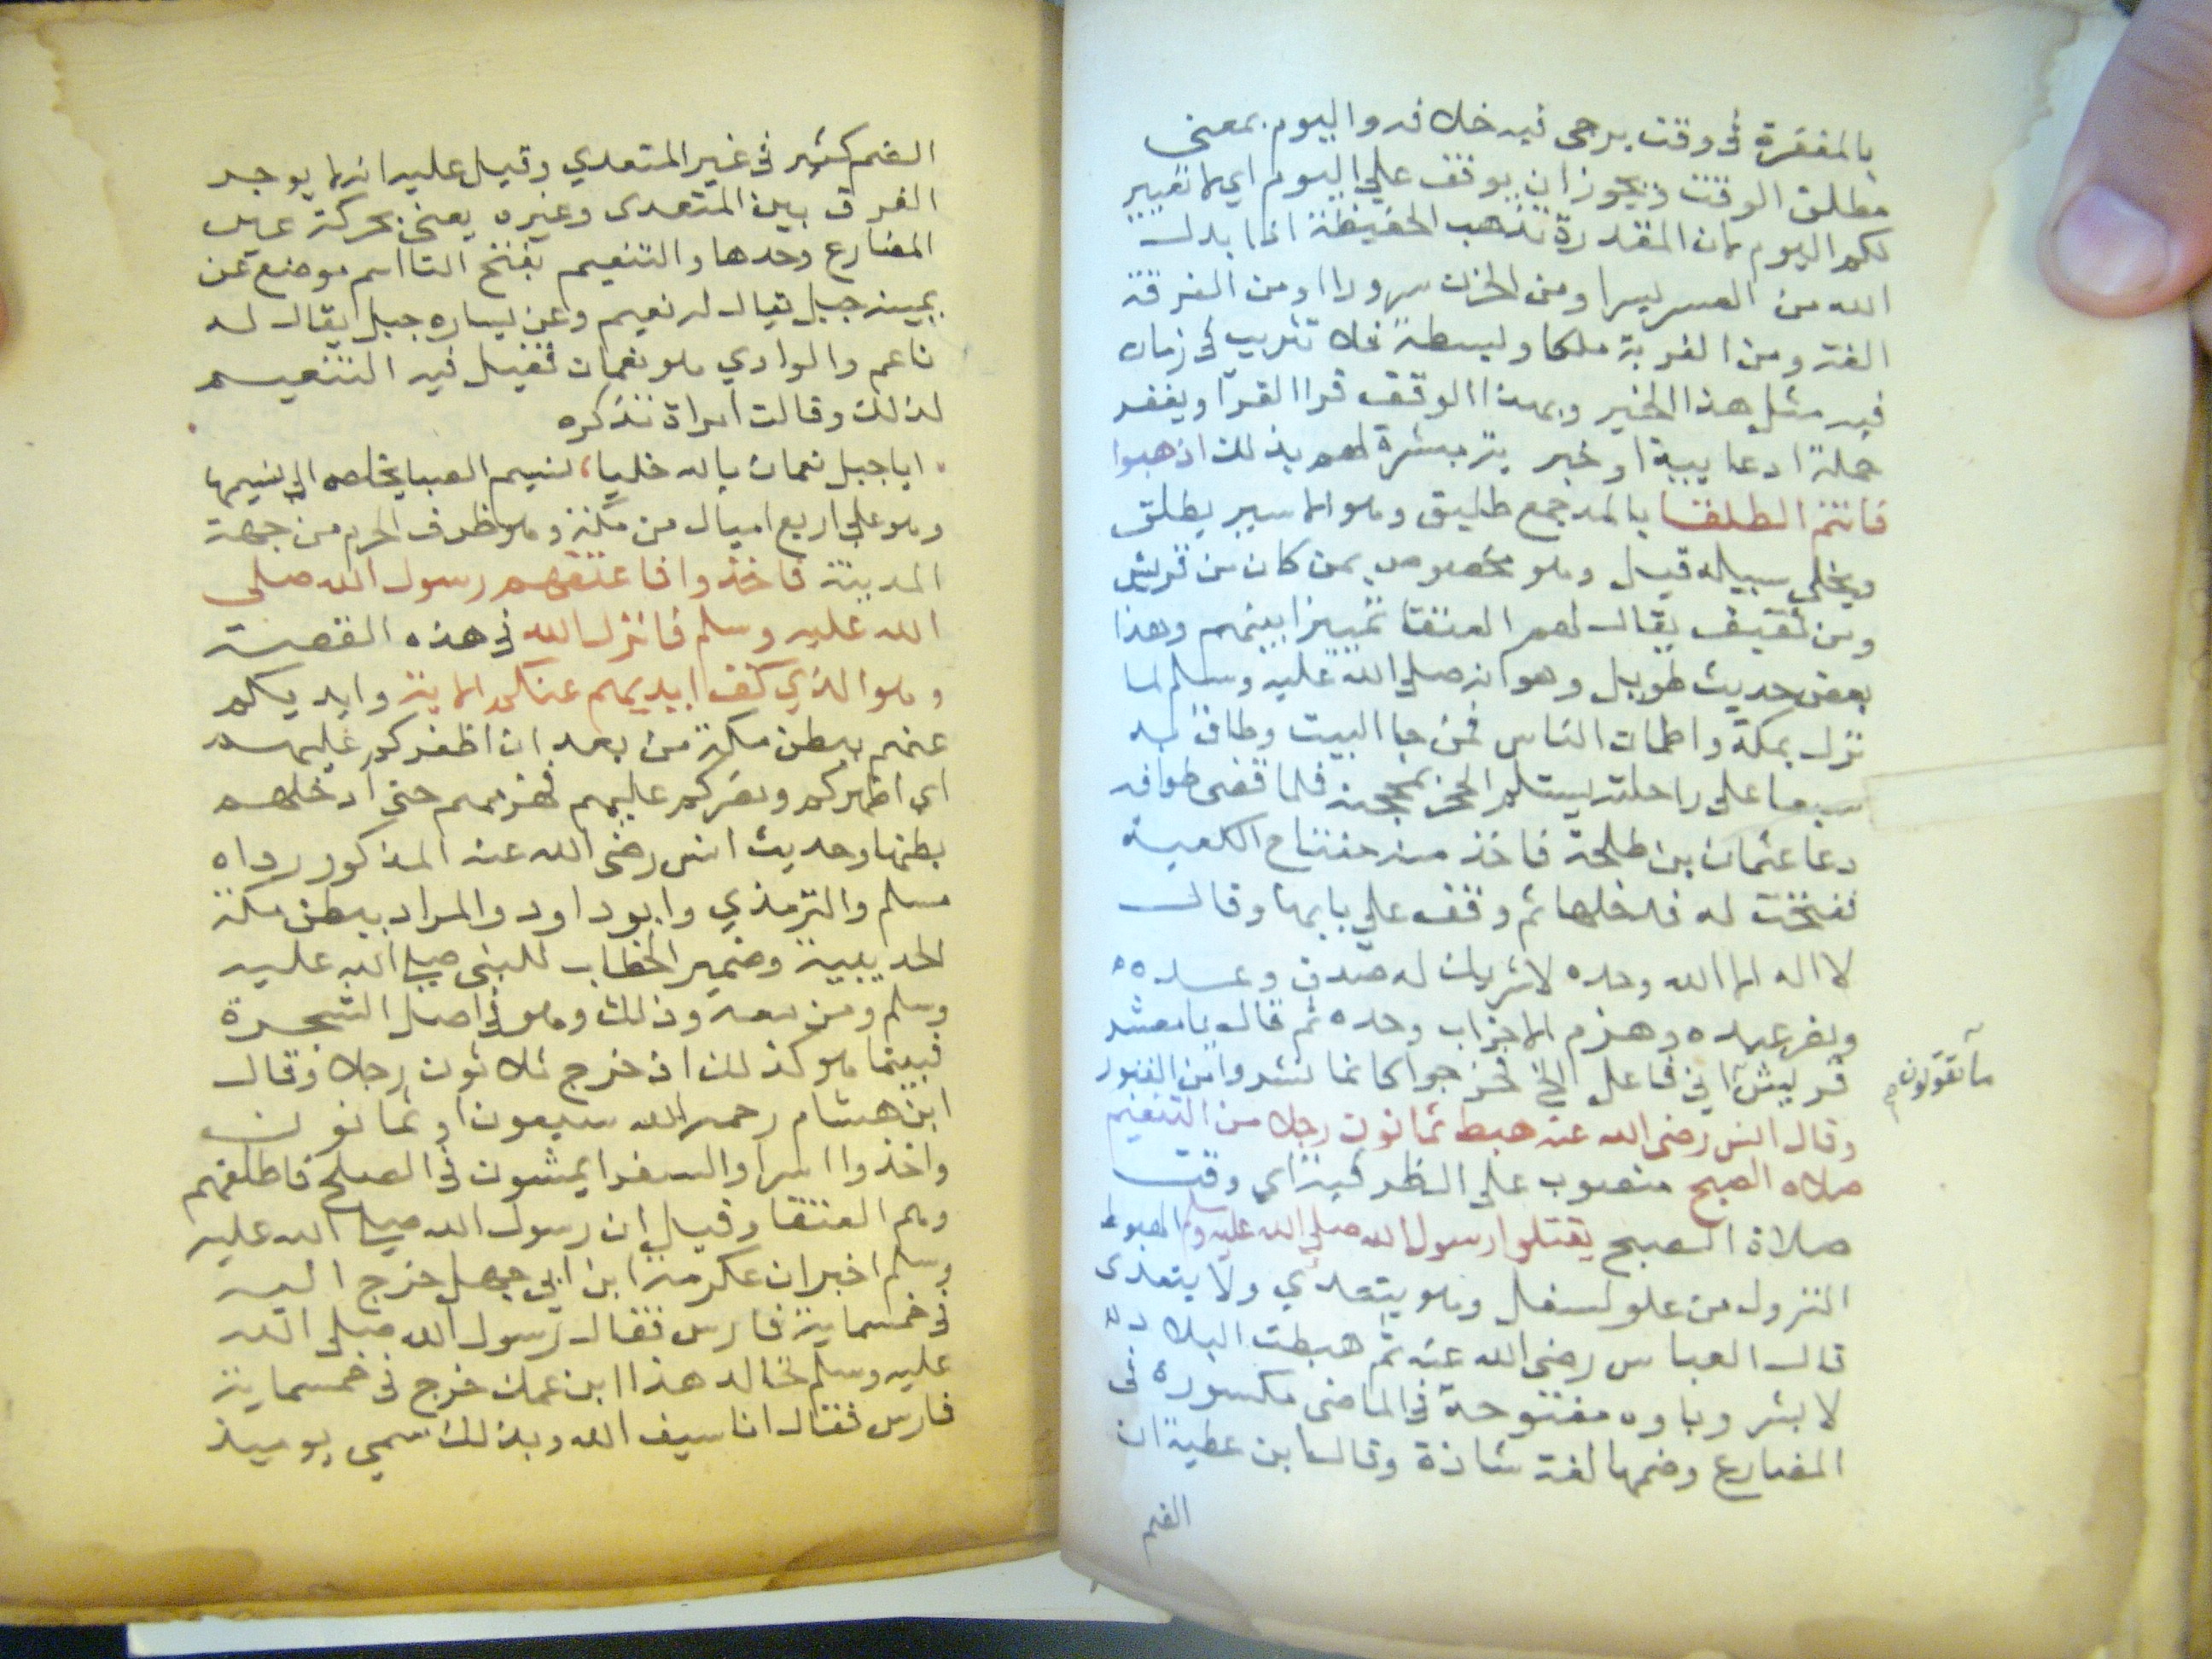 بالمغفرة في وقت يرجى فيه خلافه واليوم بمعنى
مطلق الوقت ويجوز ان يوقف علي اليوم اي لا تعيير
لكم اليوم لان المقدرة تذهب الحفيظة اذا ابدل
الله من العسر يسرا ومن الحزن سرورا ومن الفرقة
الفة ومن الغربة ملكا وبسطة فلا تثريب في زمان
فيه مثل هذا الخير وبهذا الوقف قرا القرا ويغفر
جملة دعايية او خبرية مبشرة لهم بذلك اذهبوا
فانتم الطلقا بالمد جمع طليق وهو الاسير يطلق
ويخلى سبيله قيل وهو مخصوص بمن كان من قريش
ومن ثقيف يقال لهم العتقا تمييزا بينهم وهذا
بعض حديث طويل وهو انه صلى الله عليه وسلم لما
نزل بمكة واطمان الناس فمن جا البيت وطاف به
سبعا على راحلته يستلم الحجر بمحجنه فلما قضى طوافه
دعا عثمان بن طلحة فاخذ منه مفتاح الكعبة
ففتحت له فدخلها ثم وقف علي بابها وقال
لا اله الا الله وحده لا شريك له صدق وعده
ونصر عبده وهزم الاحزاب وحده ثم قال يا معشر
قريش اني فاعل الخ فخرجوا كانما نشروا من القبور
ما تقولون
وقال انس رضى الله عنه هبط ثمانون رجلا من التنعيم
صلاه الصبح منصوب على الظرفية اي وقت
صلاة الصبح يقتلوا رسول الله صلى الله عليه وسلم الهبوط
النزول من علو لسفل وهو يتعدي ولا يتعدى
قال العباس رضى الله عنه ثم هبطت البلاد
لا بشر وباوه مفتوحة في الماضى مكسورة في
المضارع وضمها لغة شاذة وقال ابن عطية ان
الضم
الضم كثير في غير المتعدي وقيل عليه انما يوجد
الفرق بين المتعدى وغيره يعنى بحركة عين
المضارع وحدها والتنعيم بفتح التا اسم موضع عن
يمينه جبل يقال له نعيم وعن يساره جبل يقال له
ناعم والوادي هو نعمان فقيل فيه التنعيم
لذلك وقالت امراة تذكره
ايا جبل نعمان بالله خليا، لنسيم الصبا يخلص الي نسيمها
وهو علي اربع اميال من مكة وهو طرف الحرم من جهة
المدينة فاخذوا فاعتقهم رسول الله صلى
الله عليه وسلم فانزل الله في هذه القصة
وهو الذي كف ايديهم عنكم الاية وايديكم
عنهم ببطن مكة من بعد ان اظفركم عليهم
اي اظهركم ونصركم عليهم فهزمهم حتى ادخلهم
بطنها وحديث انس رضى الله عنه المذكور رواه
مسلم والترمذي وابو داود والمراد ببطن مكة
الحديبية وضمير الخطاب للنبى صلى الله عليه
وسلم ومن معه وذلك وهو في اصل الشجرة
فبينما هو كذلك اذ خرج ثلاثون رجلا وقال
ابن هشام رحمه الله سبعون او ثمانون
واخذوا اسرا والسفرا يمشون في الصلح فاطلقهم
وهم العتقا وقيل ان رسول الله صلى الله عليه
وسلم اخبر ان عكرمة ابن ابي جهل خرج اليه
في خمسماية فارس فقال رسول الله صلى الله
عليه وسلم لخالد هذا ابن عمك خرج في خمسماية
فارس فقال انا سيف الله وبذلك سمي يوميذ